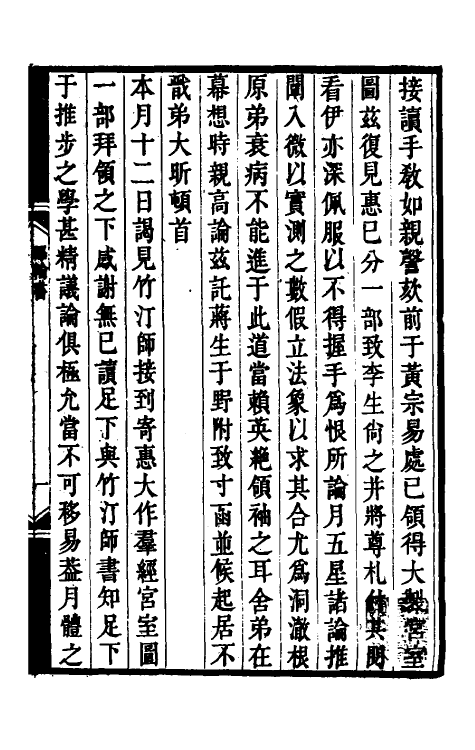 接讀手教如親謦欬前于黃宗易處已領得大製宮室
圖茲復見惠已分一部致李生尙之并將尊札付其閱
看伊亦深佩服以不得握手爲恨所論月五星諸論推
闡入微以實測之數假立法象以求其合尤爲洞澈根
原弟衰病不能進于此道當賴英絶領袖之耳舍弟在
幕想時親高論茲託蔣生于野附致寸函並候起居不
戬弟大昕頓首
本月十二日謁見竹汀師接到寄惠大作羣經宮室圖
一部拜領之下感謝無已讀足下與竹汀師書知足下
于推步之學甚精議論俱極允當不可移易葢月體之